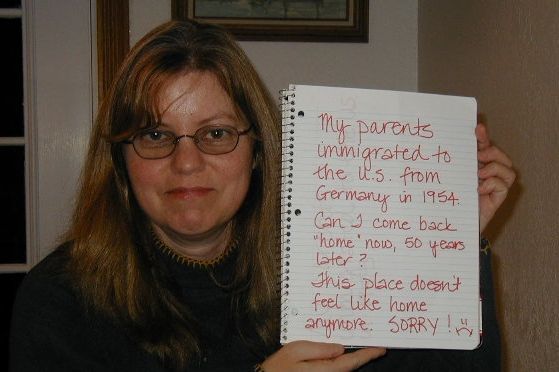 My parents
immigrated to
the U.S. from
Germany in 1954.
Can I come back
"home" now, 50 years
later?
This place doesn't
feel like home
anymore. SORRY! :(